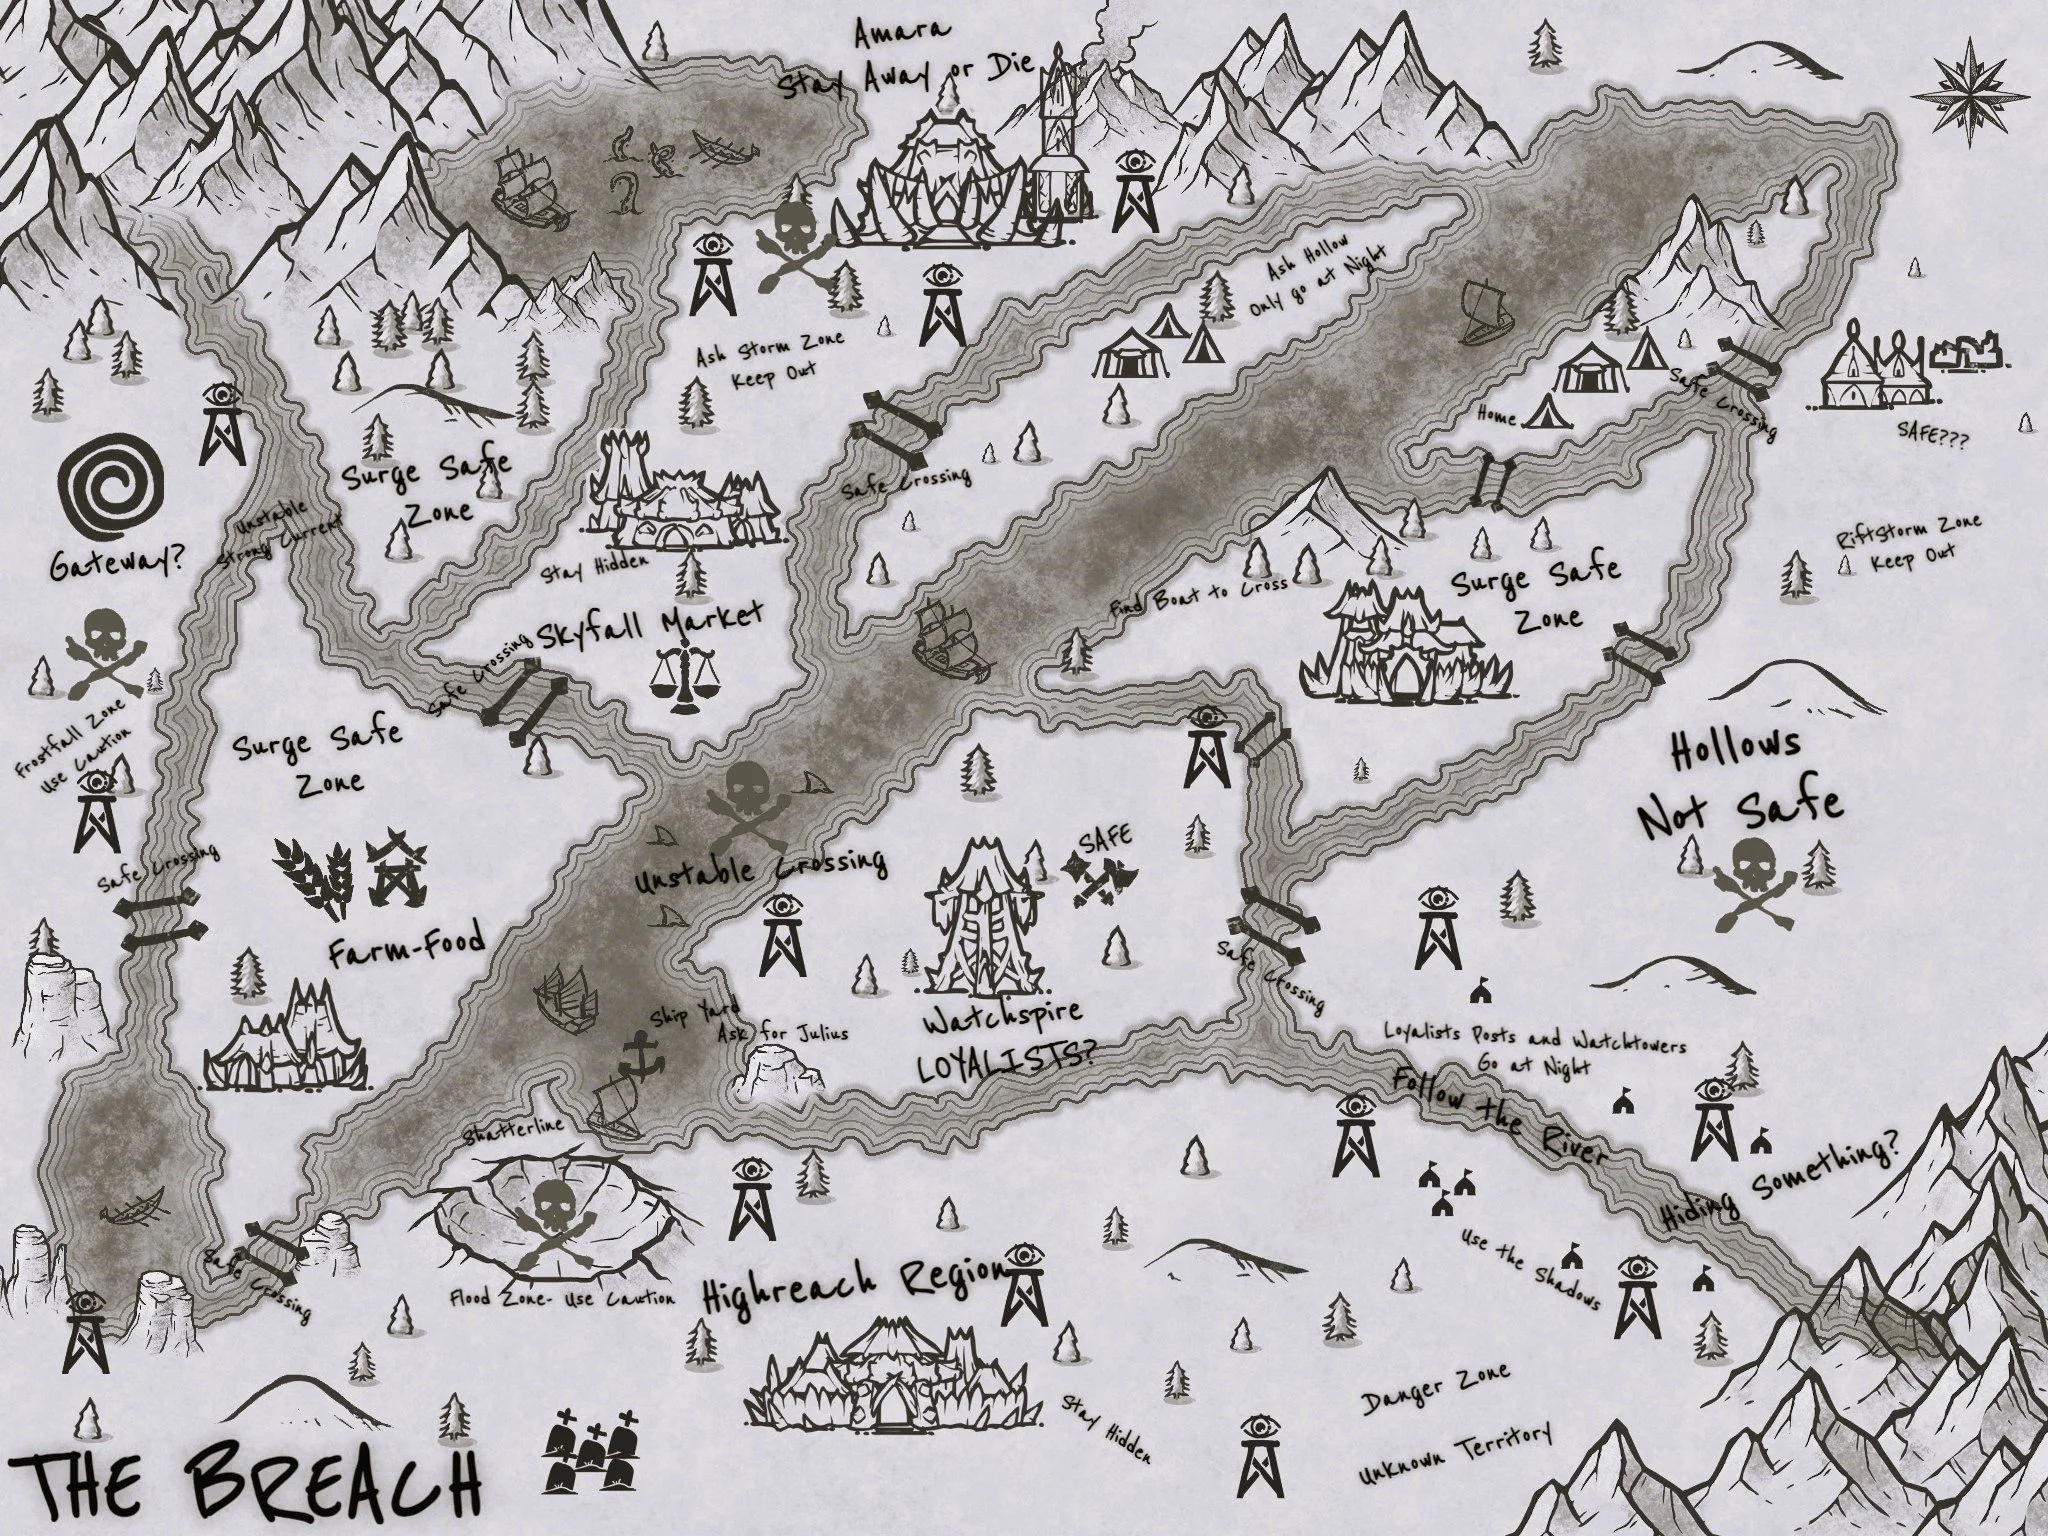 Amara
Stay Away or Die
Ash Hollow
Only go at Night
Ash Storm Zone
Keep Out
Safe Crossing
Home
SAFE???
Surge Safe
Zone
Safe Crossing
Unstable
Strong Current
Gateway?
Stay Hidden
RiftStorm Zone
Keep Out
Surge Safe
Zone
Find Boat to Cross
Skyfall Market
Safe Crossing
Frostfall Zone
Use Caution
Surge Safe
Zone
Hollows
Not Safe
SAFE
Unstable Crossing
Safe Crossing
Farm-Food
Safe Crossing
Ship Yard
Ask for Julius
Watchspire
LOYALISTS?
Loyalists Posts and Watchtowers
Go at Night
Follow the River
Shatterline
Hiding Something?
Use the Shadows
Safe Crossing
Flood Zone- Use Caution
Highreach Region
Stay Hidden
Danger Zone
Unknown Territory
THE BREACH